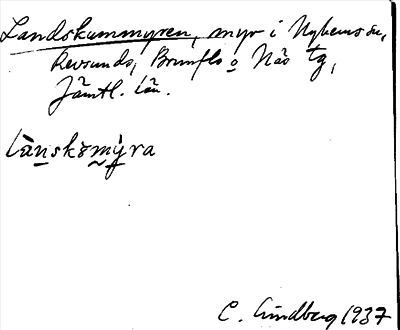 Landskammyren, myr i Nyhems sn,
Revsunds, Brunflo o Näs tg,
Jämtl. län.
lànskǝmỳra
C. Lindberg 1937